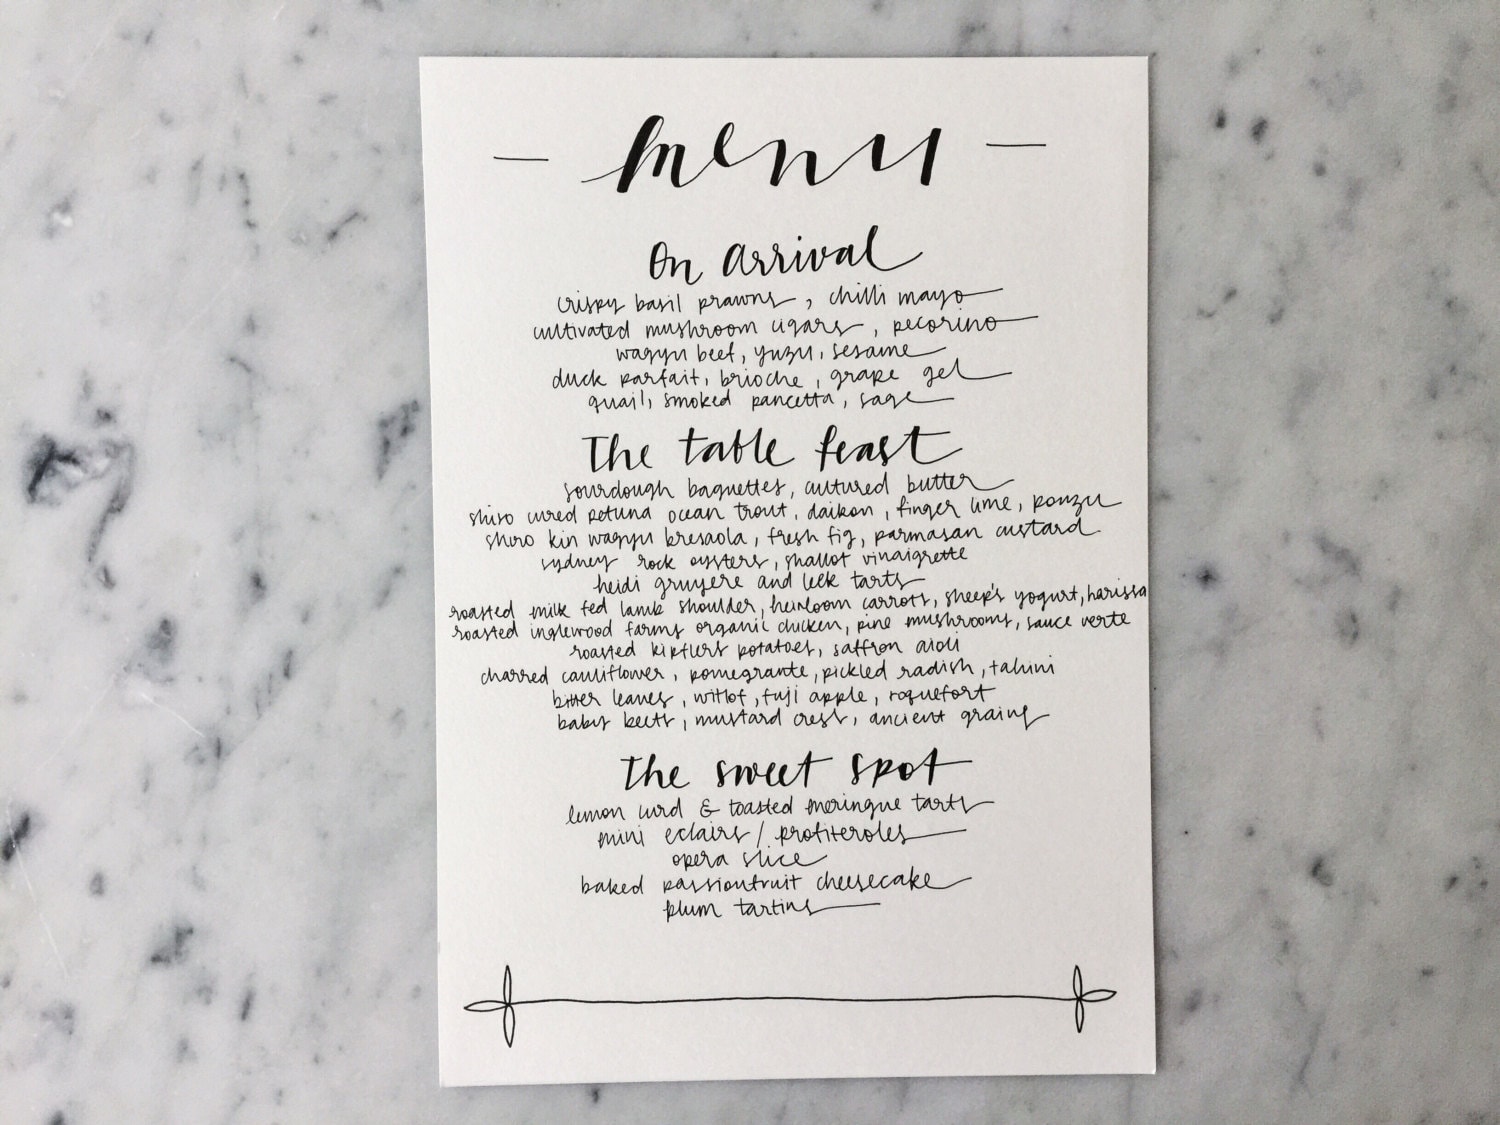 - menu -
On Arrival
crispy basil prawns, chilli mayo
cultivated mushroom cigars, pecorino
wagyu beef, yuzu, sesame
duck parfait, brioche, grape gel
quail, smoked pancetta, sage
The table feast
sourdough baguettes, cultured butter
shiso cured petuna ocean trout, daikon, finger lime, ponzu
shiro kin wagyu bresaola, fresh fig, parmasan custard
sydney rock oysters, shallot vinaigrette
heidi gruyere and leek tarts
roasted milk fed lamb shoulder, heirloom carrots, sheep's yogurt, harissa
roasted inglewood farms organic chicken, pine mushrooms, sauce verte
roasted kipflers potatoes, saffron aioli
charred cauliflower, pomegrante, pickled radish, tahini
bitter leaves, witlof, fuji apple, roquefort
baby beets, mustard cress, ancient grains
The sweet spot
lemon curd & toasted meringue tarts
mini eclairs / profiteroles
opera slice
baked passionfruit cheesecake
plum tartins